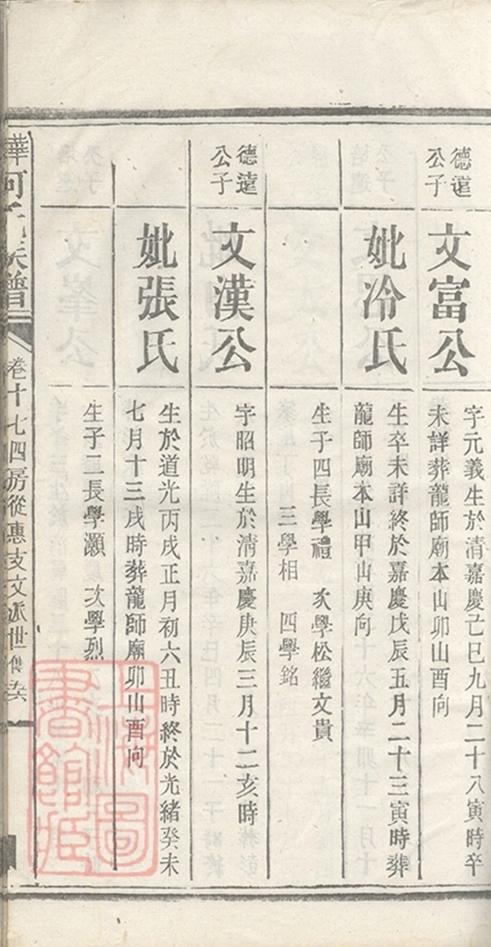 德遠公子
文富公
字元義生於清嘉慶己巳九月二十八寅時卒
未詳葬龍師廟本山卯山酉向
妣冷氏
生卒未詳終於嘉慶戊辰五月二十三寅時葬
龍師廟本山甲山庚向
生子四長學禮 次學松繼文貴
三學相 四學銘
德遠公子
文漢公
字昭明生於清嘉慶庚辰三月十二亥時
妣張氏
生於道光丙戌正月初六丑時終於光緒癸未
七月十三戌時葬龍師廟卯山酉向
生子二長學灝 次學烈
何氏族譜
卷十七四房從惠支文派世傳